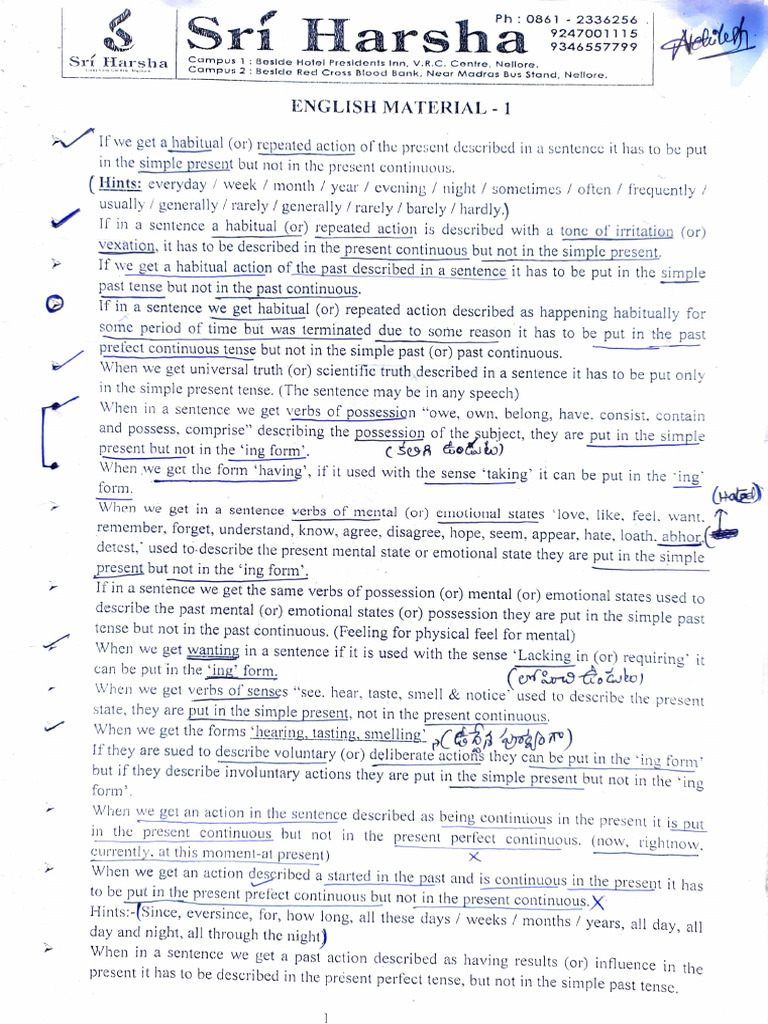 Sri Harsha
Sri Harsha
Ph : 0861 - 2336256
9247001115
9346557799
Campus 1 : Beside Hotel Presidents Inn, V.R.C. Centre, Nellore.
Campus 2 : Beside Red Cross Blood Bank, Near Madras Bus Stand, Nellore.
ENGLISH MATERIAL - 1
If we get a habitual (or) repeated action of the present described in a sentence it has to be put
in the simple present but not in the present continuous.
(Hints: everyday / week / month / year / evening / night / sometimes / often / frequently /
usually / generally / rarely / generally / rarely / barely / hardly.)
If in a sentence a habitual (or) repeated action is described with a tone of irritation (or)
vexation, it has to be described in the present continuous but not in the simple present.
If we get a habitual action of the past described in a sentence it has to be put in the simple
past tense but not in the past continuous.
If in a sentence we get habitual (or) repeated action described as happening habitually for
some period of time but was terminated due to some reason it has to be put in the past
prefect continuous tense but not in the simple past (or) past continuous.
When we get universal truth (or) scientific truth described in a sentence it has to be put only
in the simple present tense. (The sentence may be in any speech)
When in a sentence we get verbs of possession “owe, own, belong, have, consist, contain
and possess, comprise” describing the possession of the subject, they are put in the simple
present but not in the ‘ing form’. (కలిగి ఉండుట)
When we get the form ‘having’, if it used with the sense ‘taking’ it can be put in the ‘ing’
form.
(Hated)
When we get in a sentence verbs of mental (or) emotional states ‘love, like, feel, want,
remember, forget, understand, know, agree, disagree, hope, seem, appear, hate, loath, abhor,
detest,’ used to describe the present mental state or emotional state they are put in the simple
present but not in the ‘ing form’.
If in a sentence we get the same verbs of possession (or) mental (or) emotional states used to
describe the past mental (or) emotional states (or) possession they are put in the simple past
tense but not in the past continuous. (Feeling for physical feel for mental)
When we get wanting in a sentence if it is used with the sense ‘Lacking in (or) requiring’ it
can be put in the ‘ing’ form. (లోపించి ఉండుట)
When we get verbs of senses “see, hear, taste, smell & notice’ used to describe the present
state, they are put in the simple present, not in the present continuous.
When we get the forms ‘hearing, tasting, smelling’
If they are sued to describe voluntary (or) deliberate actions they can be put in the ‘ing form’
but if they describe involuntary actions they are put in the simple present but not in the ‘ing
form’.
When we get an action in the sentence described as being continuous in the present it is put
in the present continuous but not in the present perfect continuous. (now, rightnow,
currently, at this moment-at present)
When we get an action described a started in the past and is continuous in the present it has
to be put in the present prefect continuous but not in the present continuous.
Hints:-(Since, eversince, for, how long, all these days / weeks / months / years, all day, all
day and night, all through the night)
When in a sentence we get a past action described as having results (or) influence in the
present it has to be described in the present perfect tense, but not in the simple past tense.
1